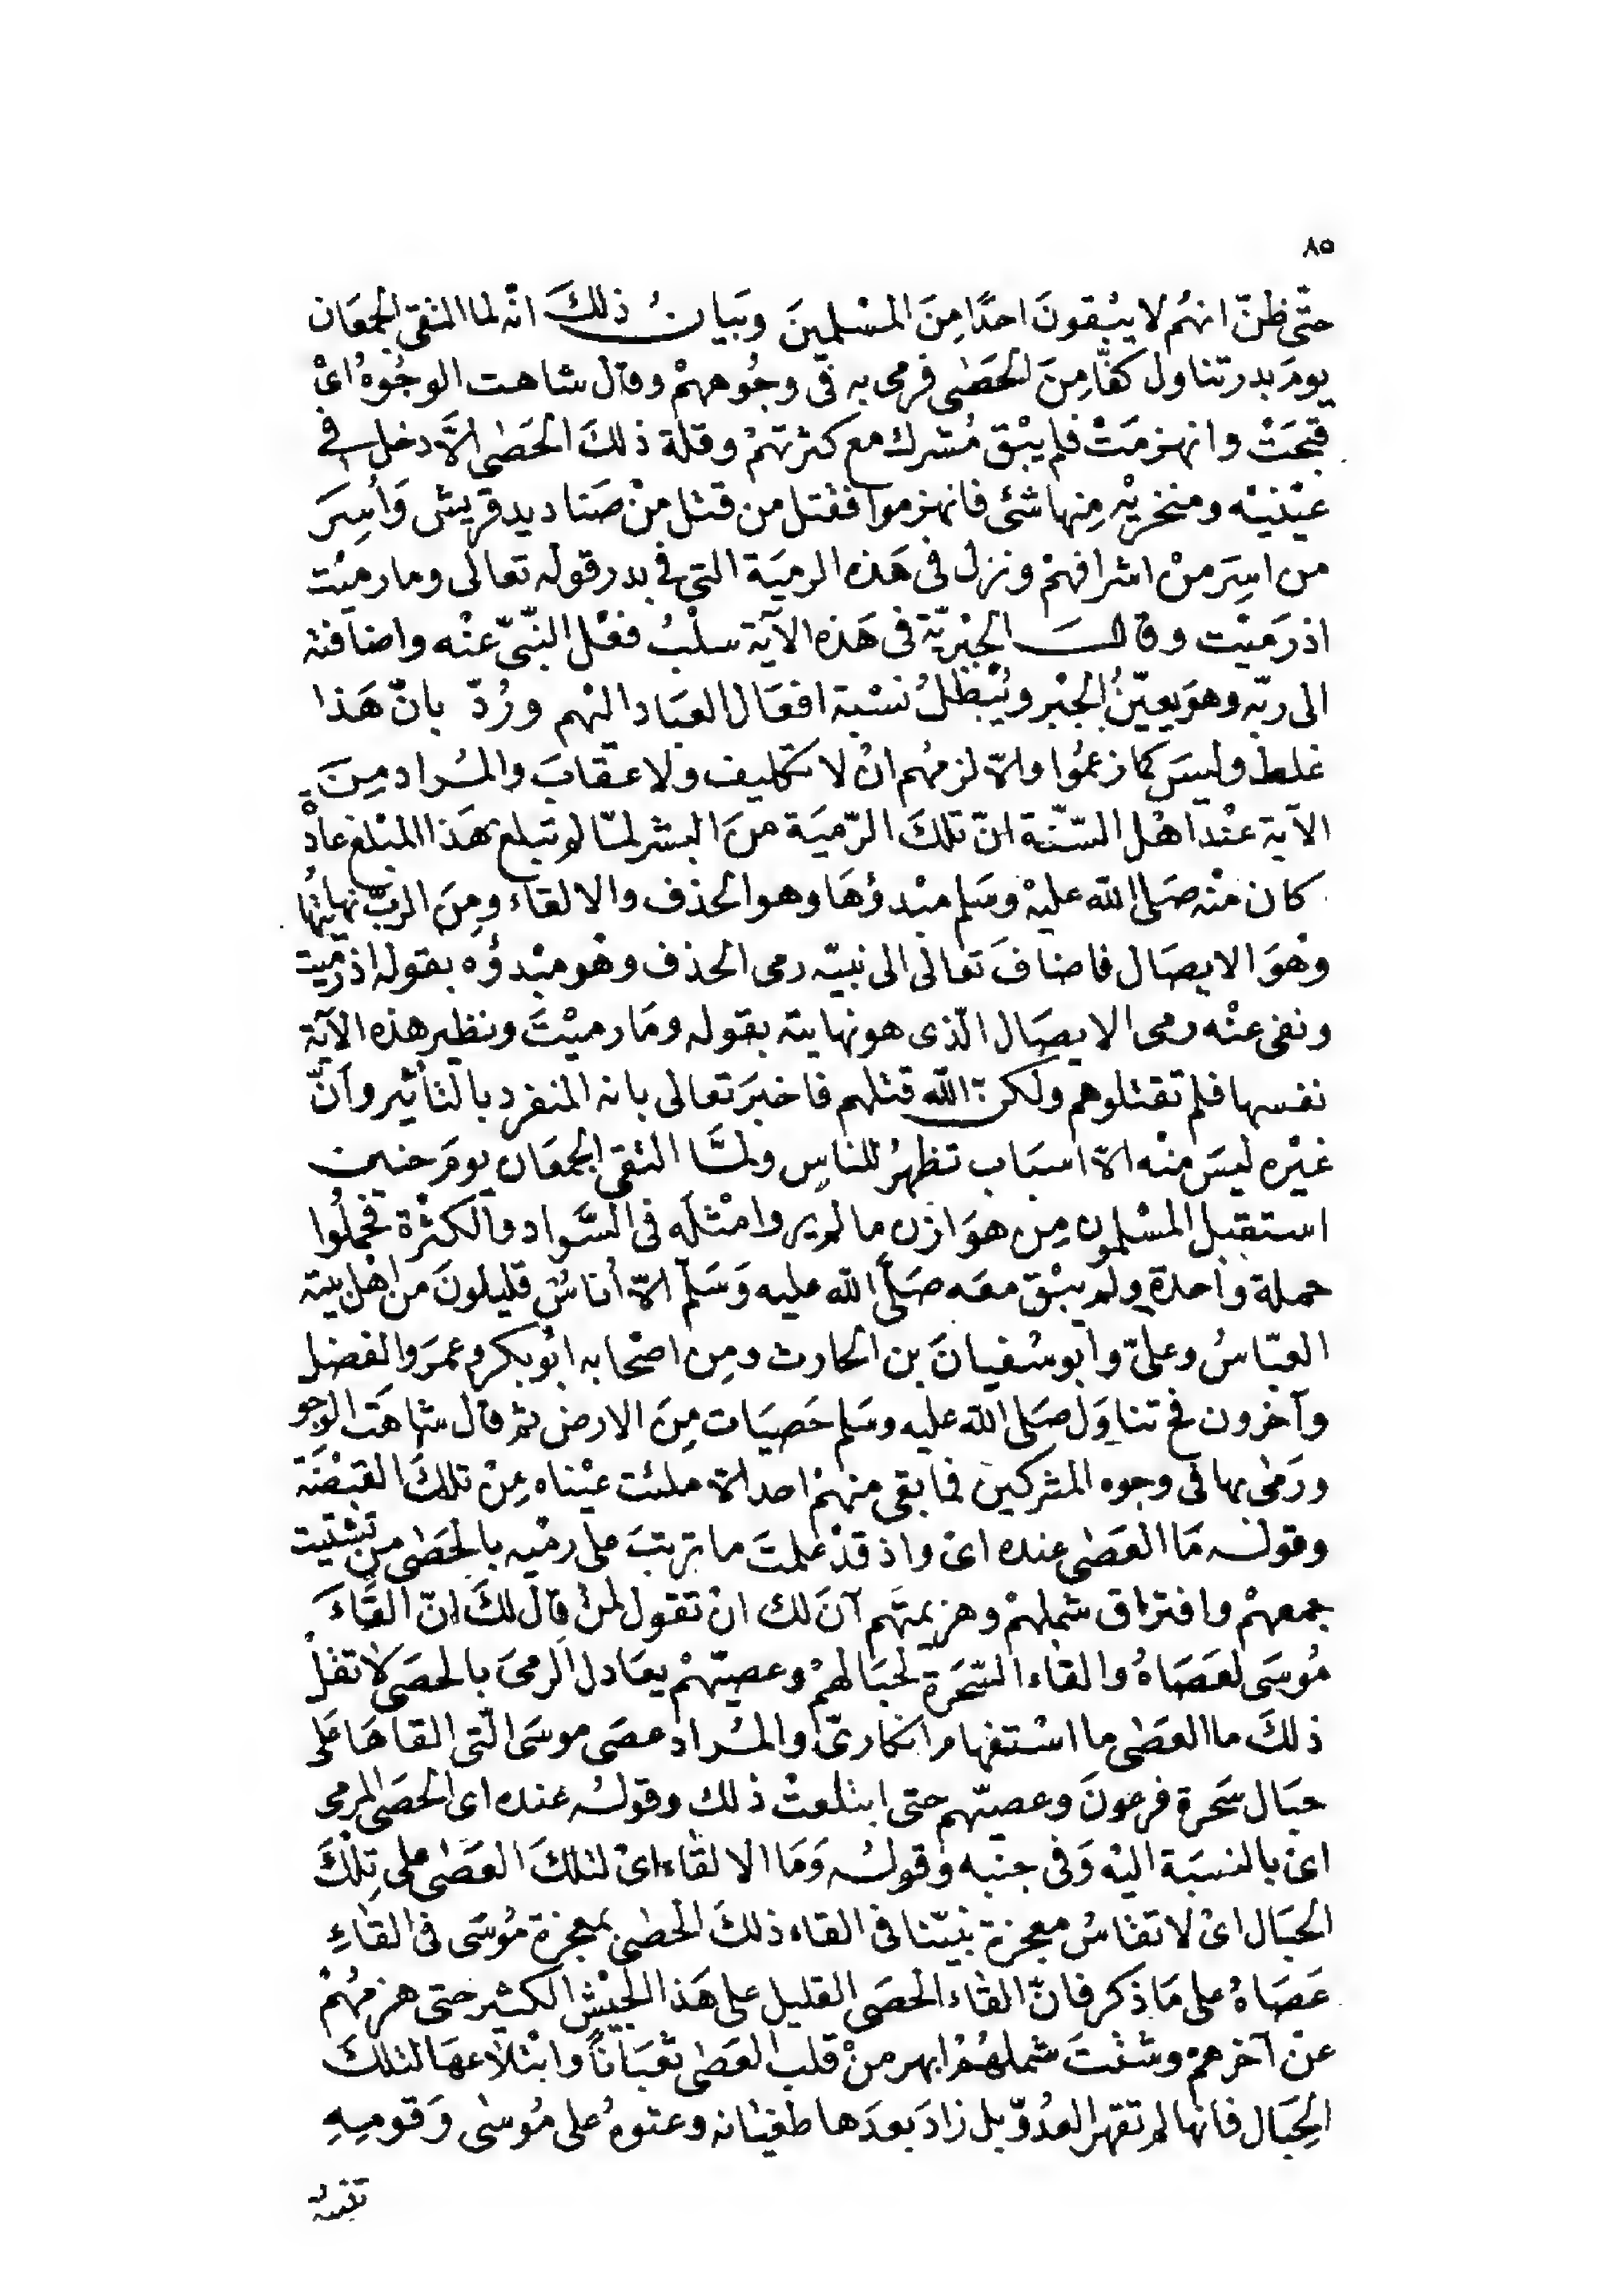 ٨٥
حتّى ظنّ انهُم لا يبْقونَ احدًا مِنَ المسْلمينَ وبَيانُ ذلكَ انّه لما التقى الجمعَان
يومَ بدر تناول كفًّا مِنَ الحَصٰى فرمى به فى وجُوههمْ وقال شاهت الوجُوهُ اىْ
قبحَتْ وانهزمَتْ فلم يبْق مُشرك مع كثرتهمْ وقلة ذلكَ الحَصٰى الاَّ دخل فى
عيْنيْه ومنخريْه مِنها شئ فانهزموا فقتل من قتل منْ صَناديد قريش وَاُسِرَ
من اسِرَ منْ اشرافهمْ ونزل فى هَذه الرميَة التى فى بدر قوله تعالى وما رميْت
اذ رَميْت وقالت الجبْريّة فى هَذه الآية سلْبُ فعْل النّبىّ عنْه واضافته
الى ربّه وهوَ يعيّنُ الجبْر ويُبْطلُ نسْبة افعَال العبَاد اليْهم ورُدّ بانّ هَذا
غلط وليسَ كما زعمُوا والاّ لزمهُم انْ لا تكليف ولا عقابَ والمُراد مِنَ
الآية عنْد اهْل السّنّة انّ تلكَ الرّميَة منَ البشر لمّا لم تبلغ هَذا المبْلغ عادْة
كان منْه صَلى الله عليْه وسَلم مبْدؤهَا وهو الحذف والالقاء ومِنَ الربّ نهايتُها
وهْوَ الايصَال فاضافَ تعالى الى نبيّه رمى الحذف وهْو مبْدؤُه بقوله اذ رَميت
ونفى عنْه رمى الايصَال الّذى هو نهايته بقوله ومَا رميْتَ ونظير هذه الآيَة
نفسها فلم تقتلوهم ولكنّ الله قتلهم فاخبرَ تعالى بانه المنفرد بالتأثير وأنّ
غيْره ليسَ منْه الاّ اسبَاب تظهرُ للناسِ ولمَّا التقى الجمعَان يومَ حنين
استقبل المسْلمون مِن هوَازن ما لم يروا مثْلَه فى السَّواد والكثْرة فحملُوا
حملة واحدة ولم يبْق معَه صَلّى الله عليه وَسَلّم الاّ أناسٌ قليلونَ من اهْل بيته
العبّاسُ وعلىّ وابو سُفيانَ بن الحارث ومِن اصْحابه ابُو بكر وعمرَ والفضل
وآخرون فح تناوَل صَلى الله عليه وسَلم حَصيَات مِنَ الارض ثم قال شاهَت الوجو
ورَمٰى بها فى وجوه المشركين فما بقى منهمْ احد الاّ ملئت عيْناه مِنْ تلكَ القبْضَة
وقوله مَا العَصٰى عنده اىْ واذ قدْ علمتَ ما ترتبَ على رمْيه بالحَصٰى من تشْتيت
جمعهمْ وافتراق شملهمْ وهزيمتهم آنَ لك انْ تقول لمنْ قال لكَ انّ القاءَ
مُوسَى لعَصَاهُ والقاء السّحَرة لحبَالهمْ وعصيّهمْ يعَادل الرمىَ بالحصَى لا تقلْ
ذلكَ ما العصٰى ما استفهام انكارىّ والمُراد عصَى موسَى الّتى القاهَا عَلى
حبَال سَحرة فرعونَ وعصيّهم حتى ابتلعتْ ذلك وقولُه عنده اى الحَصَى المرمى
اىْ بالنسبَة اليْه وَفى جنبه وقولُه وَمَا الالقاء اىْ لتلكَ العَصٰى على تِلْكَ
الحبَال اىْ لا تقاسُ معجزة نبيّنا فى القاء ذلكَ الحصٰى بمعجزة مُوسَى فى القاءِ
عَصَاهُ على مَا ذكر فانّ القاء الحصَى القليل على هَذا الجيْش الكثير حتى هزمهُمْ
عنْ آخرهمْ وشتتَ شملهُمْ ابهر منْ قلب العَصٰى ثعبَانًا وابْتلاعهَا لتلكَ
الحِبَال فانّها لم تقهر العدُوّ بل زادَ بعدَها طغيَانه وعتوهُ على مُوسٰى وَقوميِهِ